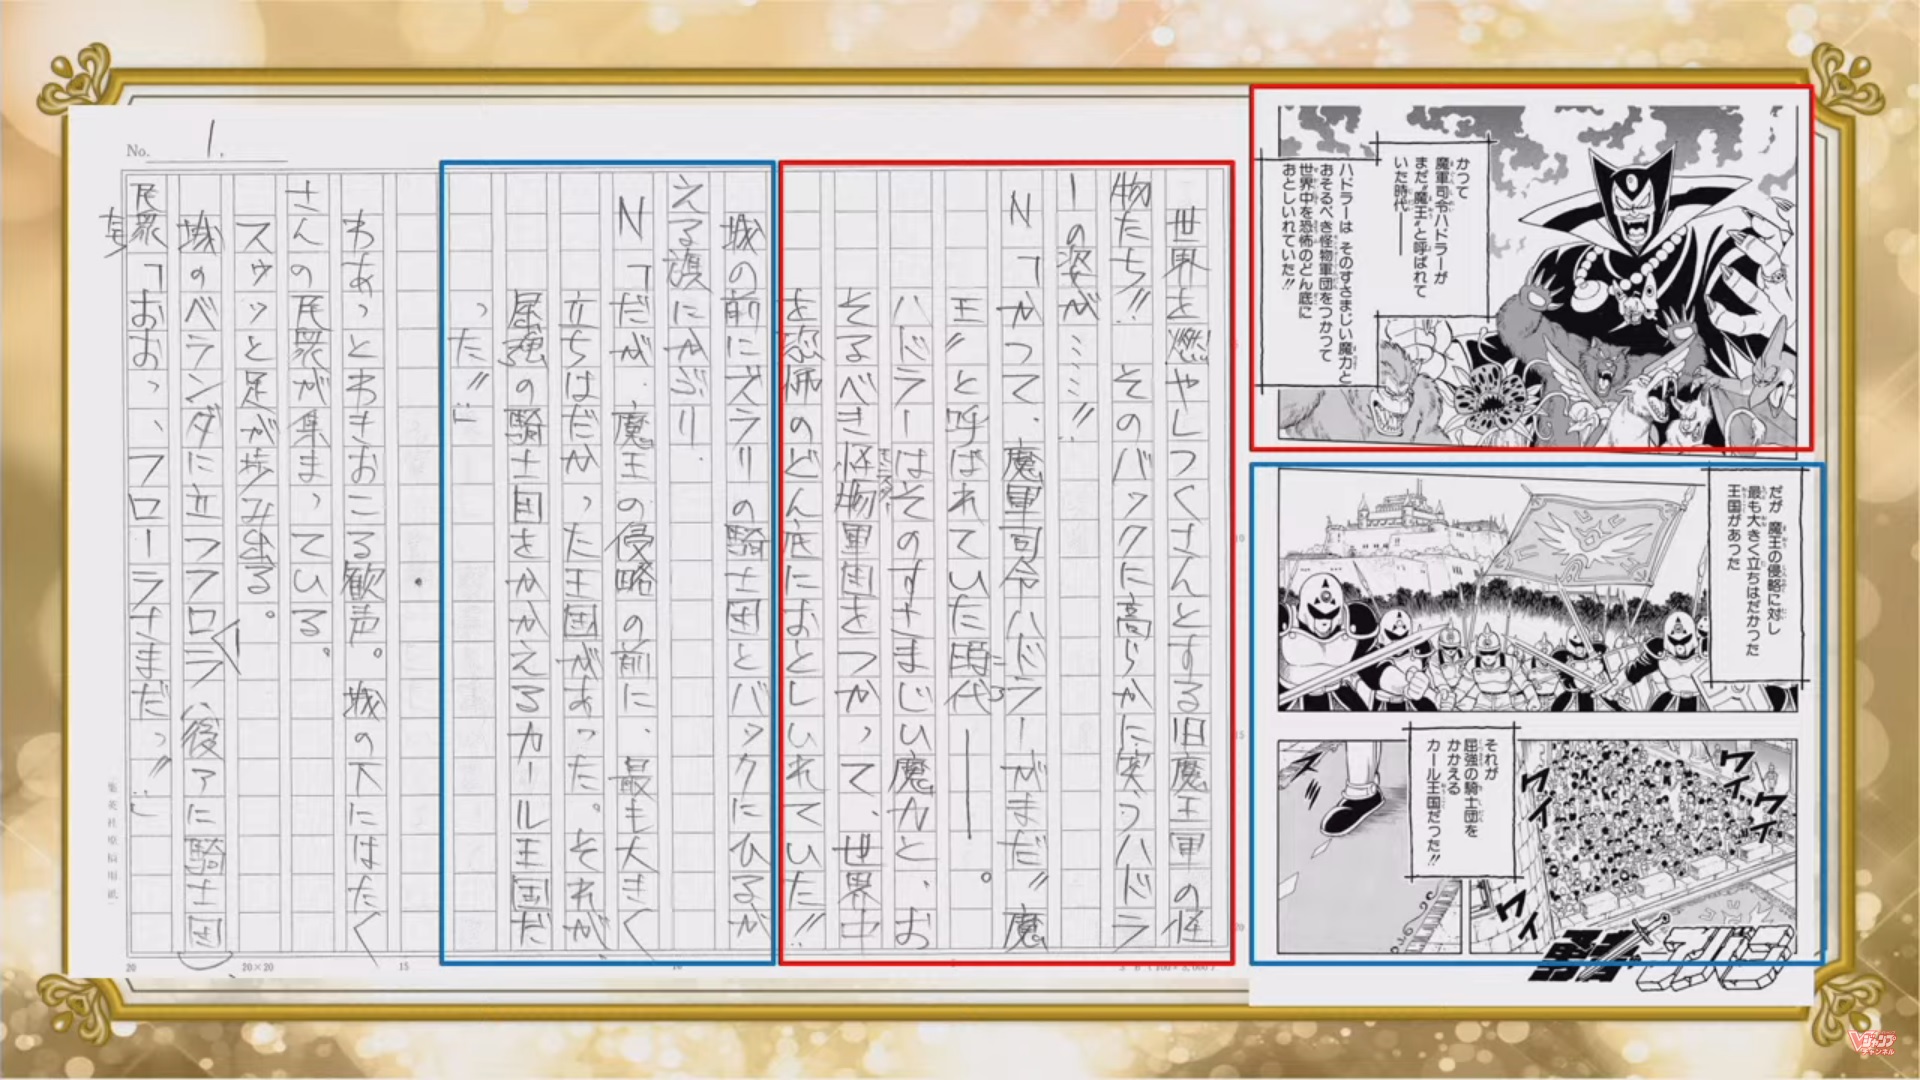 No. 1.
世界を燃やしつくさんとする旧魔王軍の怪
物たち!! そのバックに高らかに笑うハドラ
ーの姿が……!!
N「かつて、魔軍司令ハドラーがまだ〝魔
王〟と呼ばれていた時代――。
ハドラーはそのすさまじい魔力と、お
そるべき怪物軍団をつかって、世界中
モンスター
を恐怖のどん底におとしいれていた!!
城の前にズラリの騎士団とバックにひるが
える旗にかぶり
N「だが、魔王の侵略の前に、最も大きく
立ちはだかった王国があった。それが、
屈強の騎士団をかかえるカール王国だ
った!!」
わあっとわきおこる歓声。城の下にはたく
さんの民衆が集まっている。
スゥッと足が歩み出る。
城のベランダに立つフローラ、後方に騎士団。
民衆「おおっ、フローラさまだっ!!」
集英社原稿用紙
20
20×20
15
10
かつて
魔軍司令ハドラーが
まだ〝魔王〟と呼ばれて
いた時代――
ハドラーは そのすさまじい魔力と
おそるべき怪物軍団をつかって
世界中を恐怖のどん底に
おとしいれていた!!
だが 魔王の侵略に対し
最も大きく立ちはだかった
王国があった
それが
屈強の騎士団を
かかえる
カール王国だった!!
ワイ
ワイ
ワイ
勇者アバン
Vジャンプ
チャンネル